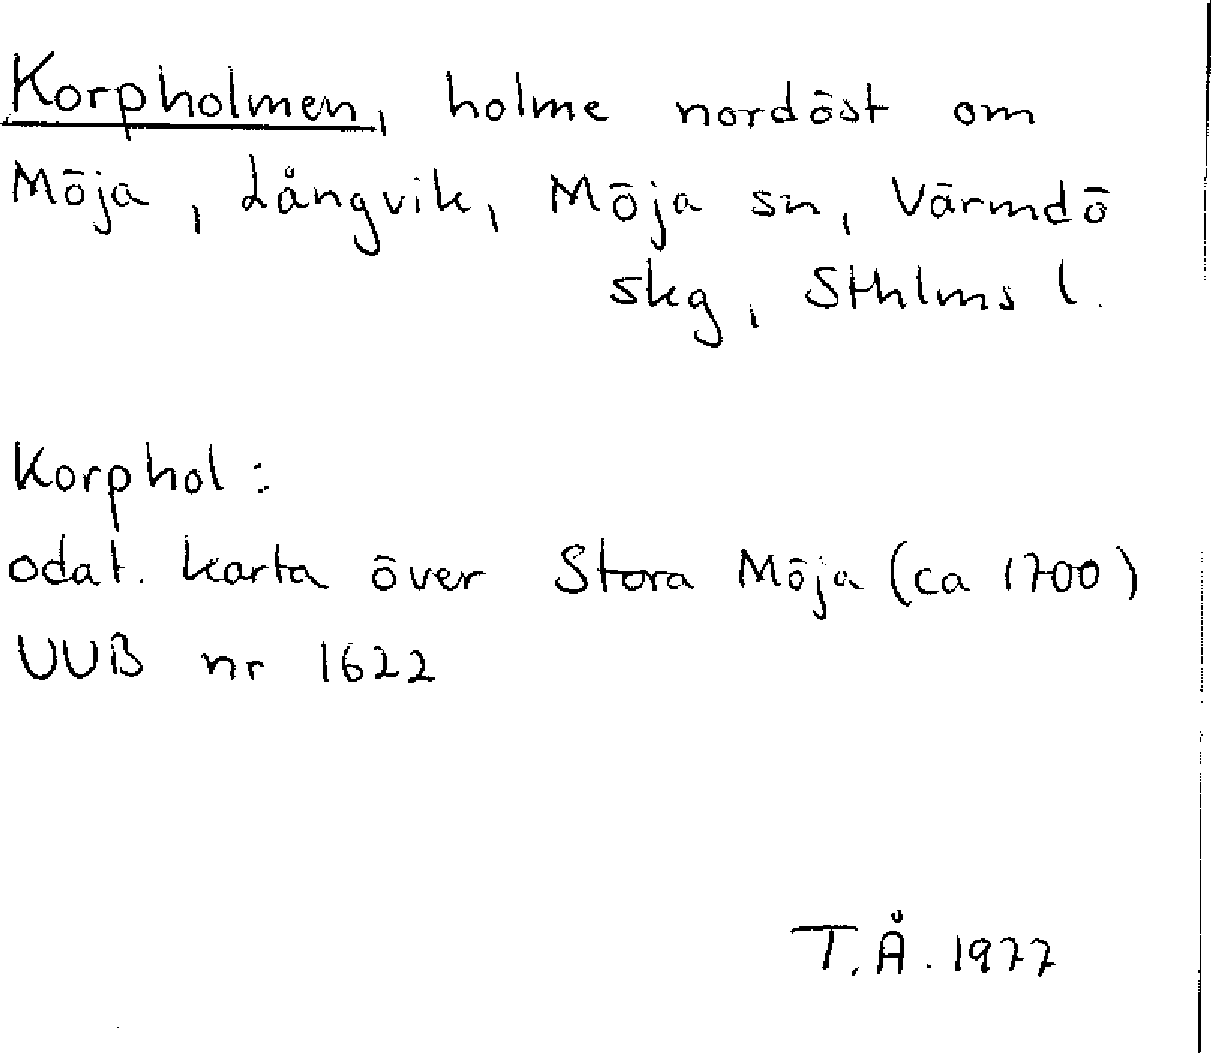 Korpholmen, holme nordöst om
Möja, Långvik, Möja sn, Värmdö
skg, Sthlms l.
Korphol:
odat. karta över Stora Möja (ca 1700)
UUB nr 1622
T.Å. 1977